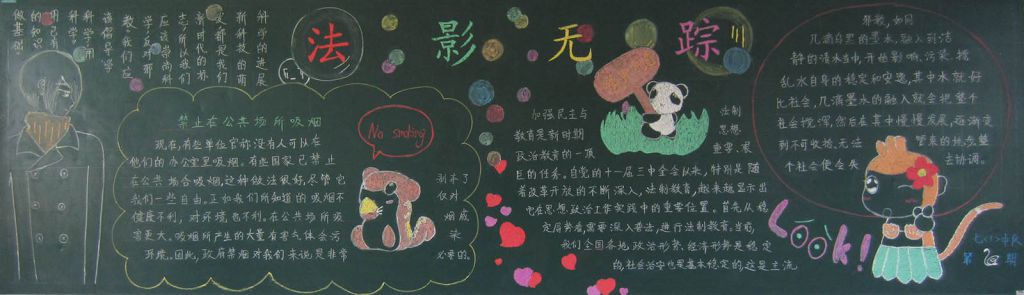 法 影 无 踪
科学的进展
新科技的萌
发都是我们
新时代的标
志,所以我们
应该崇尚科
学,反对邪
教,我们应
该倡导学
科学,用
科学,
用已有
的知识
做基础
禁止在公共场所吸烟
No smoking
现在,有些单位官称没有人可以在
他们的办公室里吸烟。有些国家已禁止
在公共场合吸烟,这种做法很好,尽管它
我们一些自由。正如我们所知道的吸烟不
健康不利,对环境也不利。在公共场所吸
害更大。吸烟所产生的大量有害气体会污
环境。因此,政府禁烟对我们来说是非常
剥夺了
仅对
烟危
染
必要的。
加强民主与
教育是新时期
政治教育的一项
法制
思想
重要艰
巨的任务。自党的十一届三中全会以来,特别是随
着改革开放的不断深入,法制教育,越来越显示出
它在思想政治工作实践中的重要位置。首先从稳
定局势看,需要深入普法,进行法制教育。当前,
我们全国各地政治形势、经济形势是稳定
的,社会治安也是基本稳定的,这是主流
邪教,如同
几滴乌黑的墨水,融入到洁
静的清水当中,开始影响、污染、搅
乱水自身的稳定和安逸,其中水就好
比社会,几滴墨水的融入就会把整个
社会搅浑,然后在其中慢慢发展,逐渐变
到不可收拾、无法
管束的地步,整
个社会便会失
去协调。
Look!
第 期